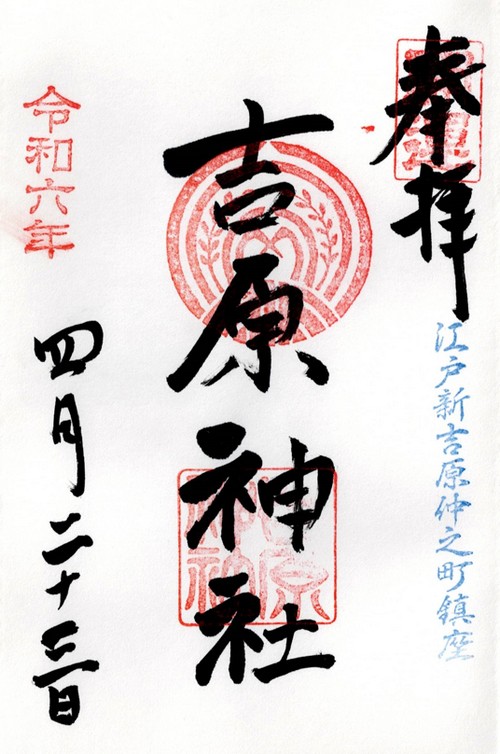 奉拝
江戸新吉原仲之町鎮座
吉原神社
令和六年
四月二十三日